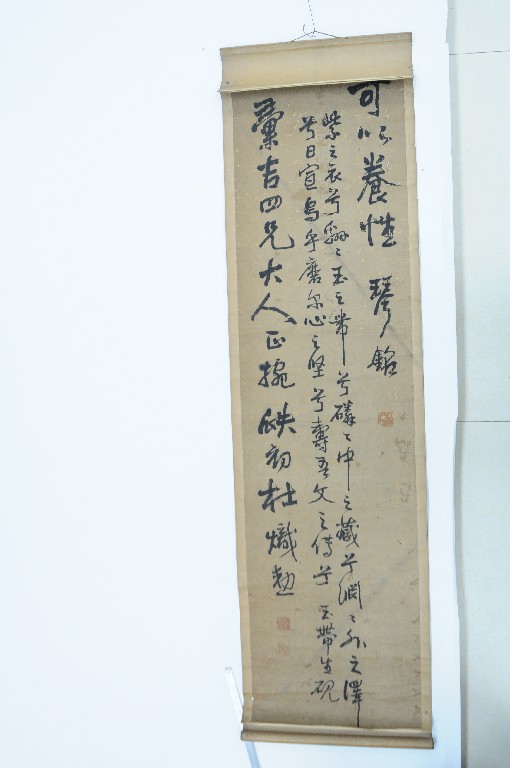 可以養性 琴銘
紫之衣兮綿〻玉之帶兮磷〻中之藏兮淵〻外之澤
兮日宣烏乎磨尔心之堅兮壽吾文之傳兮 玉帶生硯
彙吉四兄大人正捥 鉄初杜熾勳